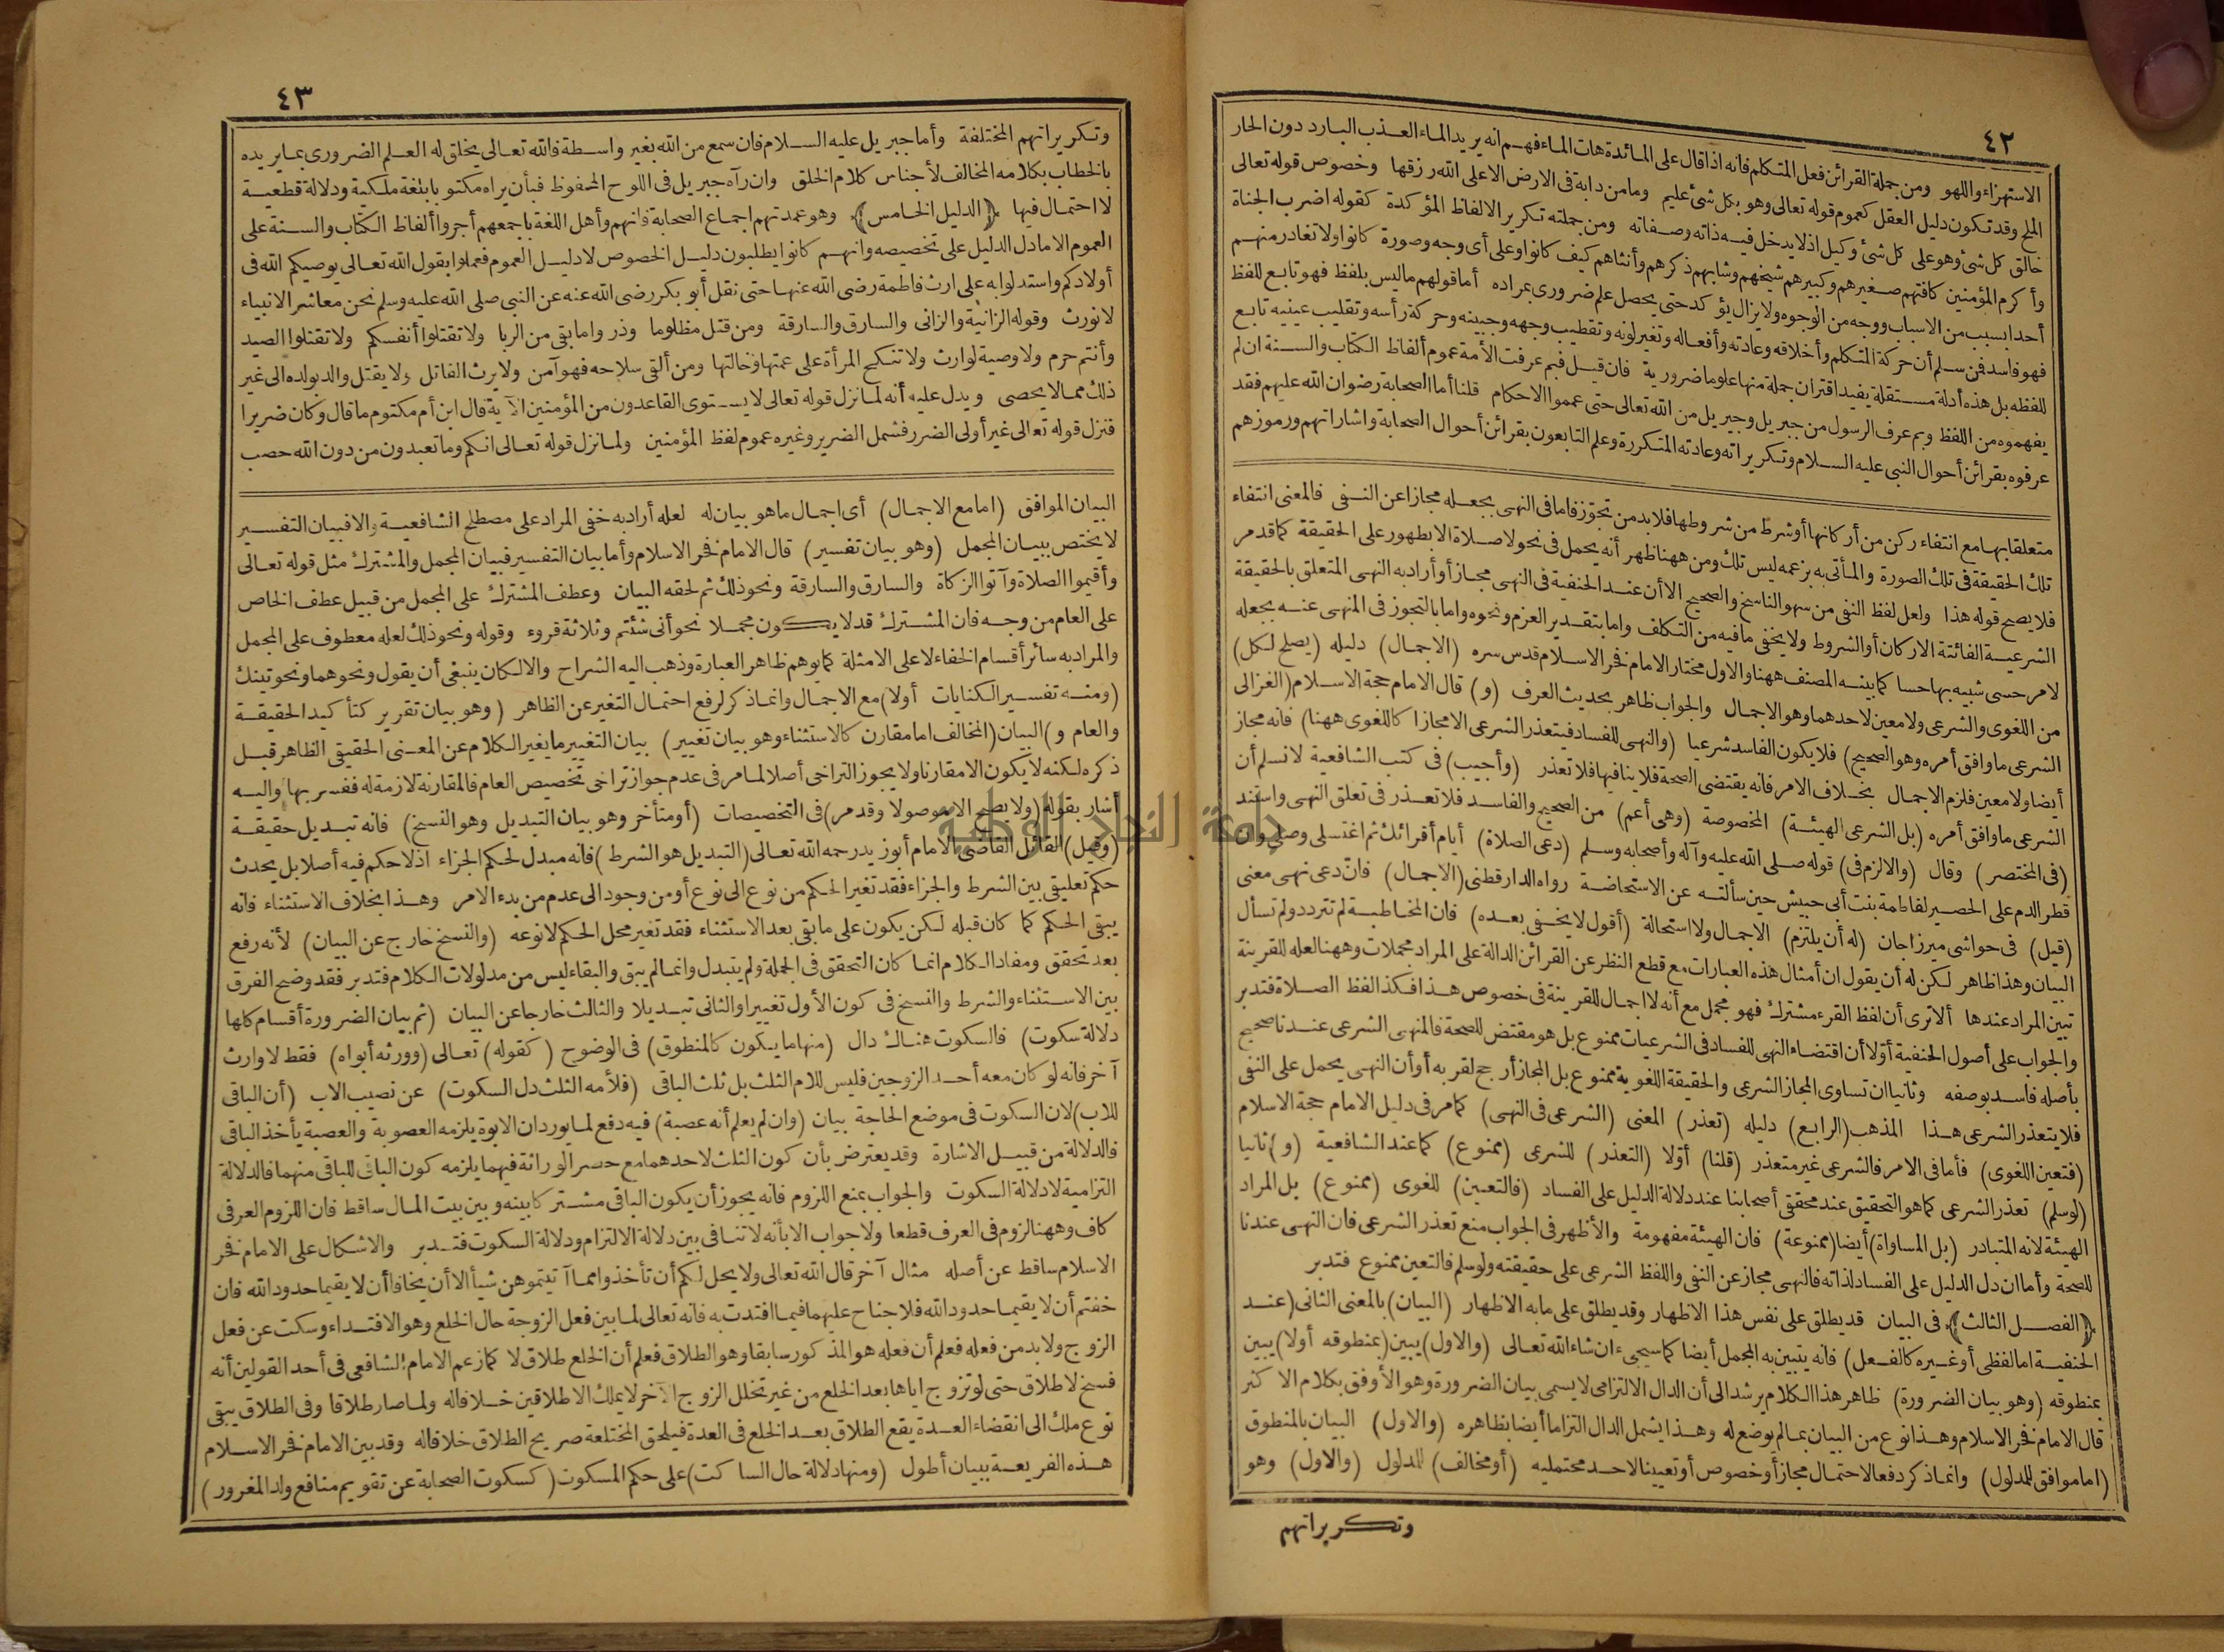 ٤٢
الاستهزاء واللهو ومن جملة القرائن فعل المتكلم فانه اذا قال على المائدة هات الماء فهم انه يريد الماء العذب البارد دون الحار
الملح وقد تكون دليل العقل كعموم قوله تعالى وهو بكل شئ عليم وما من دابة فى الارض الا على الله رزقها وخصوص قوله تعالى
خالق كل شئ وهو على كل شئ وكيل اذ لا يدخل فيه ذاته وصفاته ومن جملته تكرير الالفاظ المؤكدة كقوله اضرب الجناة
وأكرم المؤمنين كافتهم صغيرهم وكبيرهم شيخهم وشابهم ذكرهم وأنثاهم كيف كانوا وعلى أى وجه وصورة كانوا ولا تغادر منهم
أحدا بسبب من الاسباب ووجه من الوجوه ولا يزال يؤكد حتى يحصل علم ضرورى بمراده أما قولهم ما ليس بلفظ فهو تابع للفظ
فهو فاسد فمن سلم أن حركة المتكلم وأخلاقه وعادته وأفعاله وتغير لونه وتقطيب وجهه وجبينه وحركة رأسه وتقليب عينيه تابع
للفظه بل هذه أدلة مستقلة يفيد اقتران جملة منها علوما ضرورية فان قيل فبم عرفت الأمة عموم ألفاظ الكتاب والسنة ان لم
يفهموه من اللفظ وبم عرف الرسول من جبريل وجبريل من الله تعالى حتى عمموا الاحكام قلنا أما الصحابة رضوان الله عليهم فقد
عرفوه بقرائن أحوال النبى عليه السلام وتكريراته وعادته المتكررة وعلم التابعون بقرائن أحوال الصحابة واشاراتهم ورموزهم
متعلقا بها مع انتفاء ركن من أركانها أو شرط من شروطها فلا بد من تجوّز فاما فى النهى بجعله مجازا عن النفى فالمعنى انتفاء
تلك الحقيقة فى تلك الصورة والمأتى به بزعمه ليس تلك ومن ههنا ظهر أنه يحمل فى نحو لا صلاة الا بطهور على الحقيقة كما قد مر
فلا يصح قوله هذا ولعل لفظ النفى من سهو الناسخ والصحيح الا أن عند الحنفية فى النهى مجازا وأراد به النهى المتعلق بالحقيقة
الشرعية الفائتة الاركان أو الشروط ولا يخفى ما فيه من التكلف واما بتقدير العزم ونحوه واما بالتجوز فى المنهى عنه بجعله
لامر حسى شبيه بها حسا كما بينه المصنف ههنا والاول مختار الامام فخر الاسلام قدس سره (الاجمال) دليله (يصلح لكل)
من اللغوى والشرعى ولا معين لاحدهما وهو الاجمال والجواب ظاهر بحديث العرف (و) قال الامام حجة الاسلام (الغزالى
الشرعى ما وافق أمره وهو الصحيح) فلا يكون الفاسد شرعيا (والنهى للفساد فيتعذر الشرعى الا مجازا كاللغوى ههنا) فانه مجاز
أيضا ولا معين فلزم الاجمال بخلاف الامر فانه يقتضى الصحة فلا ينافيها فلا تعذر (وأجيب) فى كتب الشافعية لا نسلم أن
الشرعى ما وافق أمره (بل الشرعى الهيئة) المخصوصة (وهى أعم) من الصحيح والفاسد فلا تعذر فى تعلق النهى واستند
(فى المختصر) وقال (والا لزم فى) قوله صلى الله عليه وآله وأصحابه وسلم (دعى الصلاة) أيام أقرائك ثم اغتسلى وصلى وان
قطر الدم على الحصير لفاطمة بنت أبى حبيش حين سألته عن الاستحاضة رواه الدارقطنى (الاجمال) فان دعى نهى معنى
(قيل) فى حواشى ميرزاجان (له أن يلتزم) الاجمال ولا استحالة (أقول لا يخفى بعده) فان المخاطبة لم تتردد ولم تسأل
البيان وهذا ظاهر لكن له أن يقول ان أمثال هذه العبارات مع قطع النظر عن القرائن الدالة على المراد مجملات وههنا لعله للقرينة
تبين المراد عندها ألا ترى أن لفظ القرء مشترك فهو مجمل مع أنه لا اجمال للقرينة فى خصوص هذا فكذا لفظ الصلاة فتدبر
والجواب على أصول الحنفية أوّلا أن اقتضاء النهى للفساد فى الشرعيات ممنوع بل هو مقتض للصحة فالمنهى الشرعى عندنا صحيح
بأصله فاسد بوصفه وثانيا ان تساوى المجاز الشرعى والحقيقة اللغوية ممنوع بل المجاز أرجح لقربه أو أن النهى يحمل على النفى
فلا يتعذر الشرعى هذا المذهب (الرابع) دليله (تعذر) المعنى (الشرعى فى النهى) كما مر فى دليل الامام حجة الاسلام
(فتعين اللغوى) فأما فى الامر فالشرعى غير متعذر (قلنا) أوّلا (التعذر) للشرعى (ممنوع) كما عند الشافعية (و) ثانيا
(لو سلم) تعذر الشرعى كما هو التحقيق عند محققى أصحابنا عند دلالة الدليل على الفساد (فالتعين) للغوى (ممنوع) بل المراد
الهيئة لانه المتبادر (بل المساواة) أيضا (ممنوعة) فان الهيئة مفهومة والأظهر فى الجواب منع تعذر الشرعى فان النهى عندنا
للصحة وأما ان دل الدليل على الفساد لذاته فالنهى مجاز عن النفى واللفظ الشرعى على حقيقته ولو سلم فالتعين ممنوع فتدبر
﴿الفصل الثالث﴾ فى البيان قد يطلق على نفس هذا الاظهار وقد يطلق على ما به الاظهار (البيان) بالمعنى الثانى (عند
الحنفية اما لفظى أو غيره كالفعل) فانه يتبين به المجمل أيضا كما سيجىء ان شاء الله تعالى (والاول) يبين (بمنطوقه أولا) يبين
بمنطوقه (وهو بيان الضرورة) ظاهر هذا الكلام يرشد الى أن الدال الالتزامى لا يسمى بيان الضرورة وهو الأوفق بكلام الاكثر
قال الامام فخر الاسلام وهذا نوع من البيان بما لم يوضع له وهذا يشمل الدال التزاما أيضا بظاهره (والاول) البيان بالمنطوق
(اما موافق للمدلول) وانما ذكر دفعا لاحتمال مجاز أو خصوص أو تعيينا لاحد محتمليه (أو مخالف) للمدلول (والاول) وهو
وتكريراتهم
٤٣
وتكريراتهم المختلفة وأما جبريل عليه السلام فان سمع من الله بغير واسطة فالله تعالى يخلق له العلم الضرورى بما يريده
بالخطاب بكلامه المخالف لأجناس كلام الخلق وان رآه جبريل فى اللوح المحفوظ فبأن يراه مكتوبا بلغة ملكية ودلالة قطعية
لا احتمال فيها ﴿الدليل الخامس﴾ وهو عمدتهم اجماع الصحابة فانهم وأهل اللغة باجمعهم أجروا ألفاظ الكتاب والسنة على
العموم الا ما دل الدليل على تخصيصه وانهم كانوا يطلبون دليل الخصوص لا دليل العموم فعملوا بقول الله تعالى يوصيكم الله فى
أولادكم واستدلوا به على ارث فاطمة رضى الله عنها حتى نقل أبو بكر رضى الله عنه عن النبى صلى الله عليه وسلم نحن معاشر الانبياء
لا نورث وقوله الزانية والزانى والسارق والسارقة ومن قتل مظلوما وذروا ما بقى من الربا ولا تقتلوا أنفسكم ولا تقتلوا الصيد
وأنتم حرم ولا وصية لوارث ولا تنكح المرأة على عمتها وخالتها ومن ألقى سلاحه فهو آمن ولا يرث القاتل ولا يقتل والد بولده الى غير
ذلك مما لا يحصى ويدل عليه أنه لما نزل قوله تعالى لا يستوى القاعدون من المؤمنين الآية قال ابن أم مكتوم ما قال وكان ضريرا
فنزل قوله تعالى غير أولى الضرر فشمل الضرير وغيره عموم لفظ المؤمنين ولما نزل قوله تعالى انكم وما تعبدون من دون الله حصب
البيان الموافق (اما مع الاجمال) أى اجمال ما هو بيان له لعله أراد به خفى المراد على مصطلح الشافعية والا فبيان التفسير
لا يختص ببيان المجمل (وهو بيان تفسير) قال الامام فخر الاسلام وأما بيان التفسير فبيان المجمل والمشترك مثل قوله تعالى
وأقيموا الصلاة وآتوا الزكاة والسارق والسارقة ونحو ذلك ثم لحقه البيان وعطف المشترك على المجمل من قبيل عطف الخاص
على العام من وجه فان المشترك قد لا يكون مجملا نحو أنى شئتم وثلاثة قروء وقوله ونحو ذلك لعله معطوف على المجمل
والمراد به سائر أقسام الخفاء لا على الامثلة كما يوهم ظاهر العبارة وذهب اليه الشراح والا لكان ينبغى أن يقول ونحوهما ونحو تينك
(ومنه تفسير الكنايات أولا) مع الاجمال وانما ذكر لرفع احتمال التغير عن الظاهر (وهو بيان تقرير كتأكيد الحقيقة
والعام و) البيان (المخالف اما مقارن كالاستثناء وهو بيان تغيير) بيان التغيير ما يغير الكلام عن المعنى الحقيقى الظاهر قبل
ذكره لكنه لا يكون الا مقارنا ولا يجوز التراخى أصلا لما مر فى عدم جواز تراخى تخصيص العام فالمقارنة لازمة له ففسر بها واليه
أشار بقوله (ولا يصح الا موصولا وقد مر) فى التخصيصات (أو متأخر وهو بيان التبديل وهو النسخ) فانه تبديل حقيقة
(وقيل) القائل القاضى الامام أبو زيد رحمه الله تعالى (التبديل هو الشرط) فانه مبدل لحكم الجزاء اذ لا حكم فيه أصلا بل يحدث
حكم تعليقى بين الشرط والجزاء فقد تغير الحكم من نوع الى نوع أو من وجود الى عدم من بدء الامر وهذا بخلاف الاستثناء فانه
يبقى الحكم كما كان قبله لكن يكون على ما بقى بعد الاستثناء فقد تغير محل الحكم لا نوعه (والنسخ خارج عن البيان) لأنه رفع
بعد تحقق ومفاد الكلام انما كان التحقق فى الجملة ولم يتبدل وانما لم يبق والبقاء ليس من مدلولات الكلام فتدبر فقد وضح الفرق
بين الاستثناء والشرط والنسخ فى كون الأول تغييرا والثانى تبديلا والثالث خارجا عن البيان (ثم بيان الضرورة أقسام كلها
دلالة سكوت) فالسكوت هناك دال (منها ما يكون كالمنطوق) فى الوضوح (كقوله) تعالى (وورثه أبواه) فقط لا وارث
آخر فانه لو كان معه أحد الزوجين فليس للام الثلث بل ثلث الباقى (فلأمه الثلث دل السكوت) عن نصيب الاب (أن الباقى
للاب) لان السكوت فى موضع الحاجة بيان (وان لم يعلم أنه عصبة) فيه دفع لما يورد ان الابوة يلزمه العصوبة والعصبة يأخذ الباقى
فالدلالة من قبيل الاشارة وقد يعترض بأن كون الثلث لاحدهما مع حصر الوراثة فيهما يلزمه كون الباقى للباقى منهما فالدلالة
التزامية لا دلالة السكوت والجواب بمنع اللزوم فانه يجوز أن يكون الباقى مشتركا بينه وبين بيت المال ساقط فان اللزوم العرفى
كاف وههنا لزوم فى العرف قطعا ولا جواب الا بأنه لا تنافى بين دلالة الالتزام ودلالة السكوت فتدبر والاشكال على الامام فخر
الاسلام ساقط عن أصله مثال آخر قال الله تعالى ولا يحل لكم أن تأخذوا مما آتيتموهن شيأ الا أن يخافا أن لا يقيما حدود الله فان
خفتم أن لا يقيما حدود الله فلا جناح عليهما فيما افتدت به فانه تعالى لما بين فعل الزوجة حال الخلع وهو الافتداء وسكت عن فعل
الزوج ولا بد من فعله فعلم أن فعله هو المذكور سابقا وهو الطلاق فعلم أن الخلع طلاق لا كما زعم الامام الشافعى فى أحد القولين أنه
فسخ لا طلاق حتى لو تزوج اياها بعد الخلع من غير تخلل الزوج الآخر لا يملك الا طلاقين خلافا له ولما صار طلاقا وفى الطلاق يبقى
نوع ملك الى انقضاء العدة يقع الطلاق بعد الخلع فى العدة فيلحق المختلعة صريح الطلاق خلافا له وقد بين الامام فخر الاسلام
هذه الفريعة ببيان أطول (ومنها دلالة حال الساكت) على حكم المسكوت (كسكوت الصحابة عن تقويم منافع ولد المغرور)
جامعة النجاح الوطنية